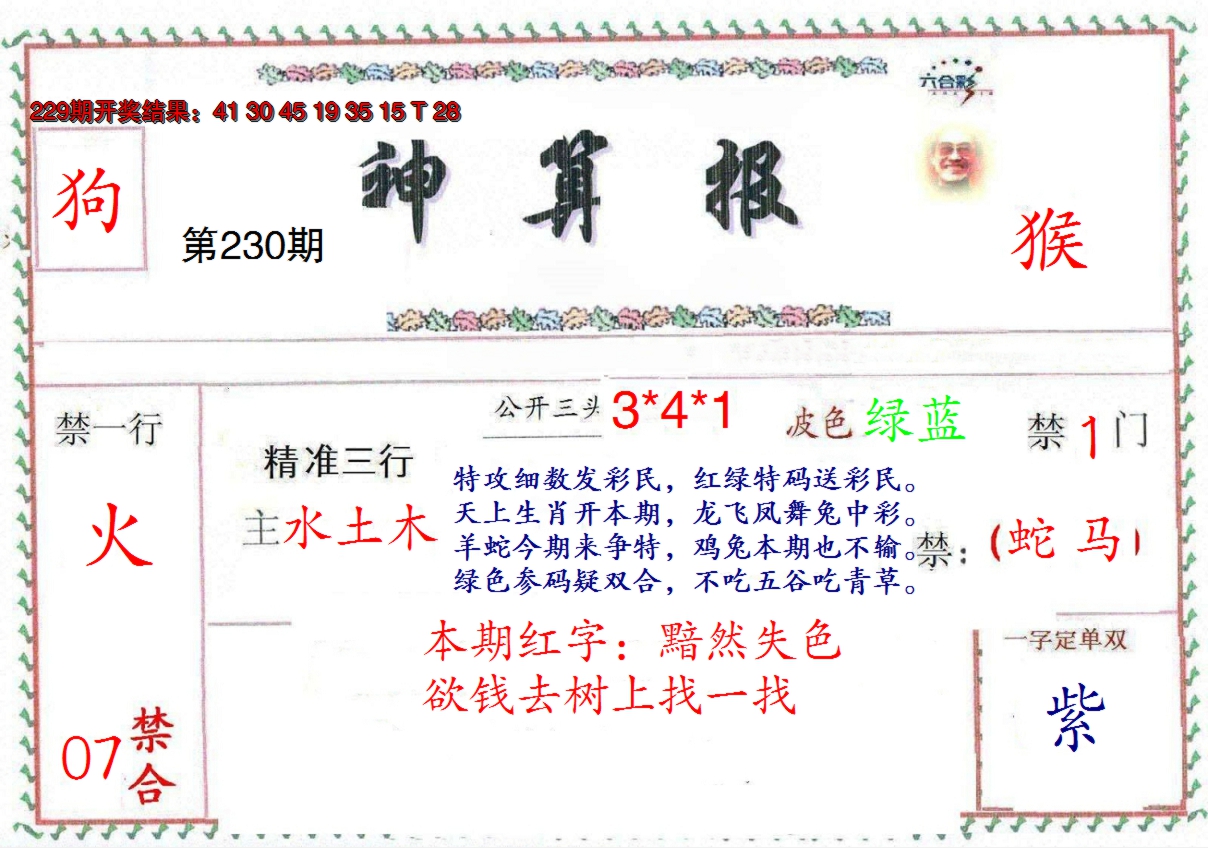 六合彩
229期开奖结果：41 30 45 19 35 15 T 28
狗
神算报
第230期
猴
禁一行
火
07禁合
公开三头3*4*1
波色绿蓝
禁1门
精准三行
主水土木
特攻细数发彩民，红绿特码送彩民。
天上生肖开本期，龙飞凤舞兔中彩。
羊蛇今期来争特，鸡兔本期也不输。
绿色参码疑双合，不吃五谷吃青草。
禁：（蛇 马）
本期红字：黯然失色
欲钱去树上找一找
一字定单双
紫